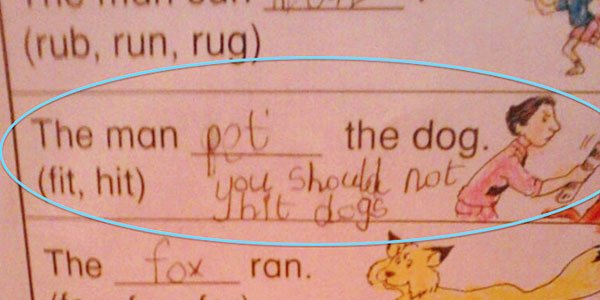 (rub, run, rug)
The man pet the dog.
(fit, hit) you should not
hit dogs
The fox ran.